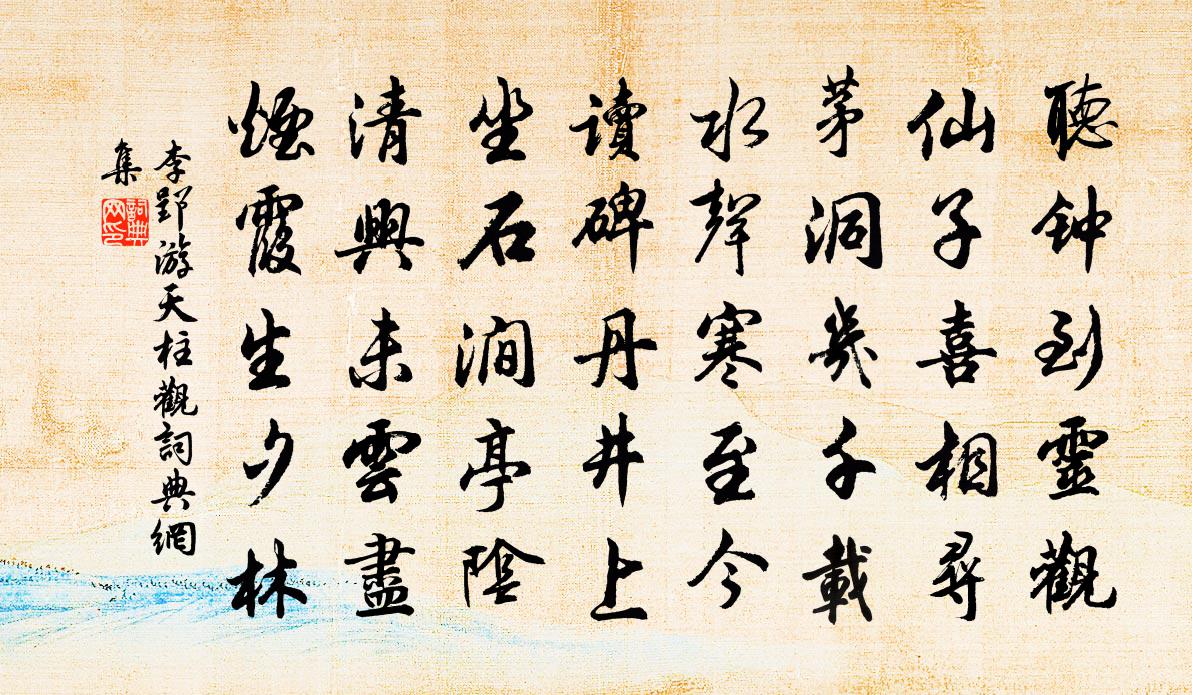 聽钟到靈觀
仙子喜相尋
茅洞幾千載
水聲寒至今
讀碑丹井上
坐石澗亭陰
清興未雲盡
煙霞生夕林
李郢游天柱觀詞典網
集
詞典
网印